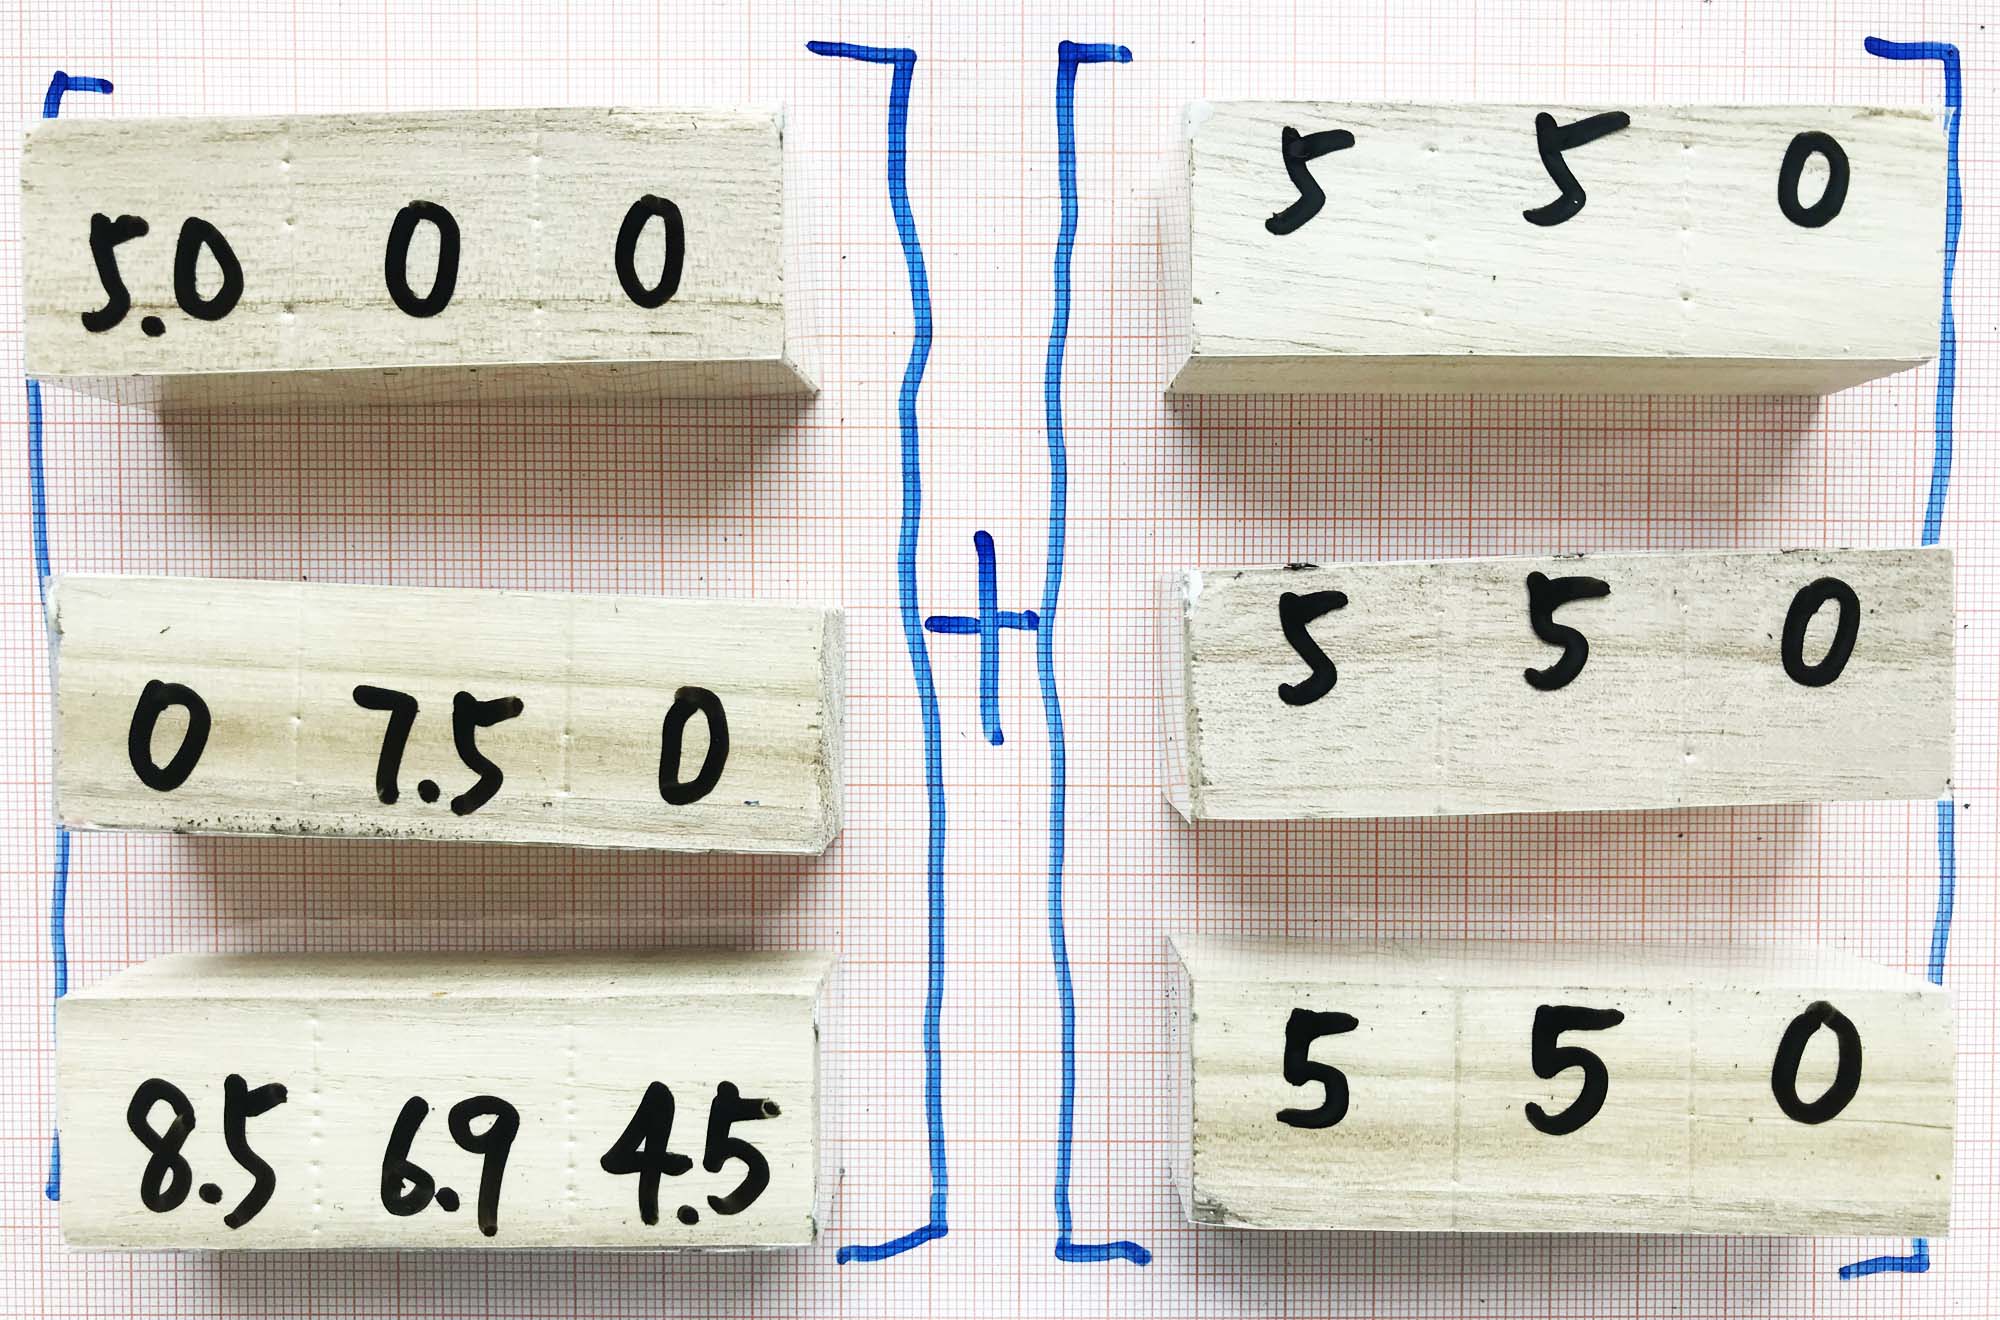 5.0 0 0
0 7.5 0
8.5 6.9 4.5
+
5 5 0
5 5 0
5 5 0